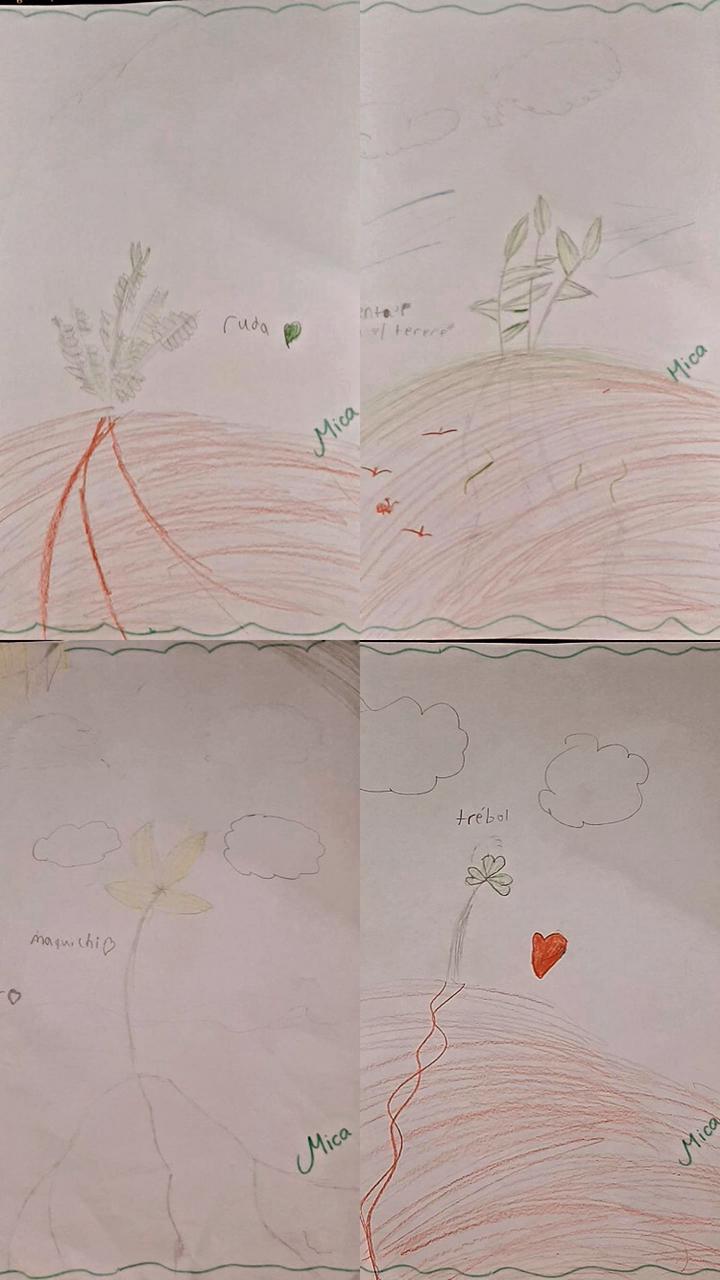 ruda
Mica
el tereré
Mica
maquichi
Mica
trébol
Mica